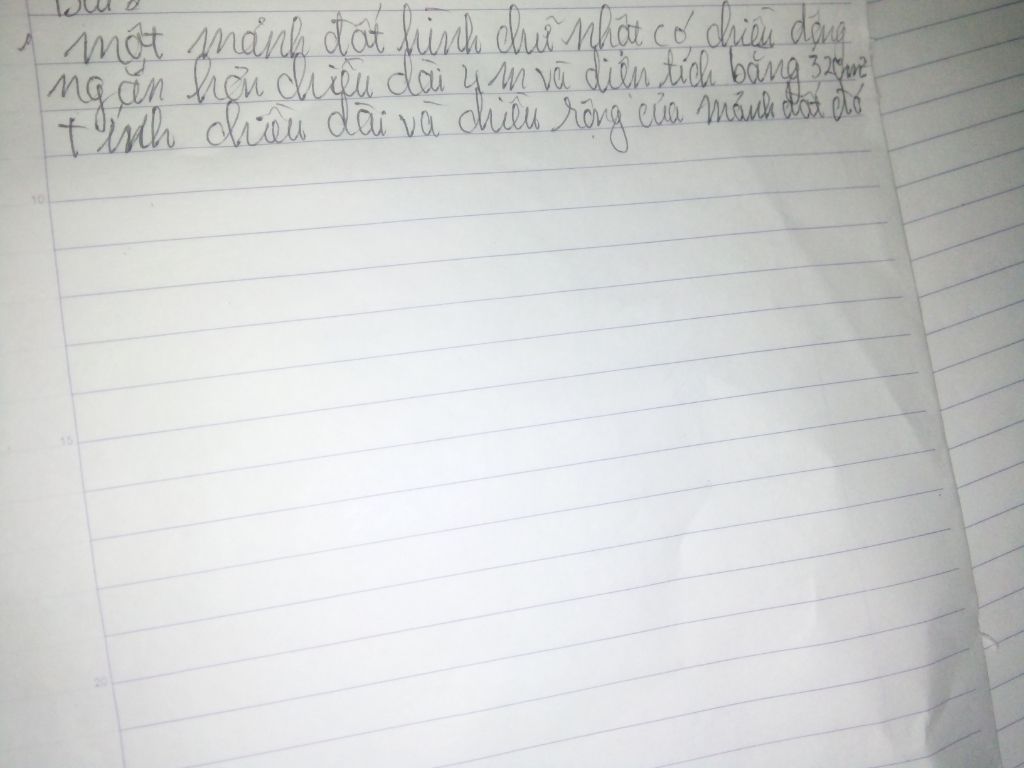 một mảnh đất hình chữ nhật có chiều dộng
ngắn hơn chiều dài 4 m và diện tích bằng 320m²
tính chiều dài và chiều rộng của mảnh đất đó
10
15
20